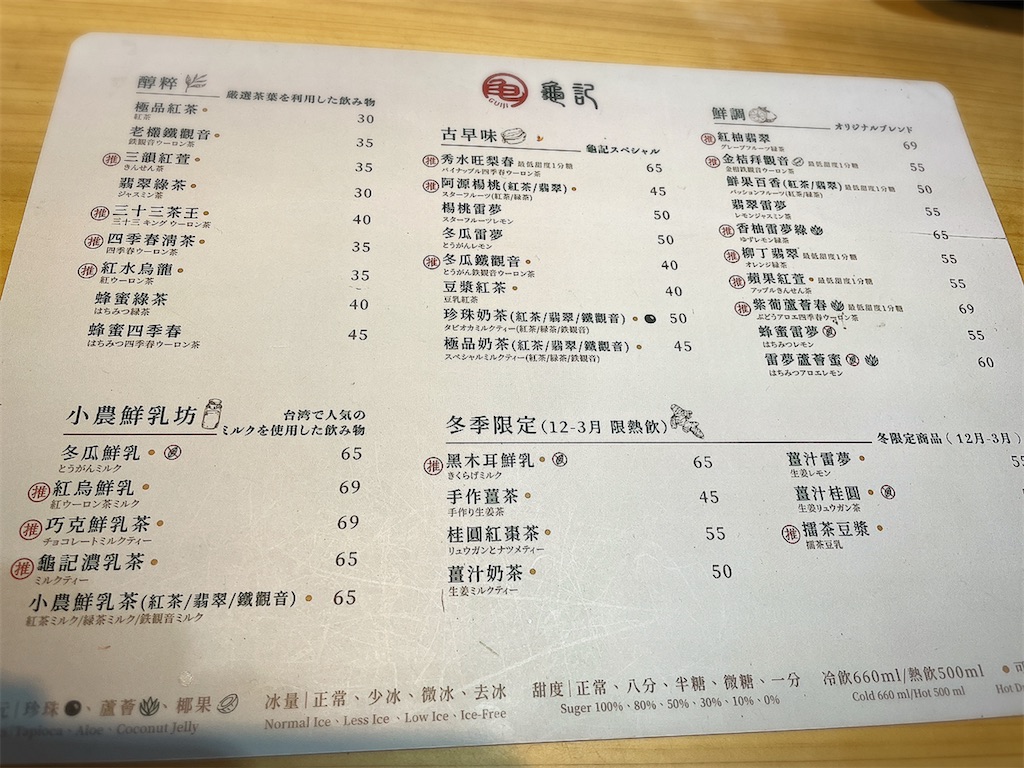 龜記
GUIJI
醇粹
厳選茶葉を利用した飲み物
極品紅茶 30
紅茶
老欉鐵觀音 35
鉄観音ウーロン茶
推 三韻紅萱 35
きんせん茶
翡翠綠茶 30
ジャスミン茶
推 三十三茶王 40
三十三 キング ウーロン茶
推 四季春清茶 35
四季春ウーロン茶
推 紅水烏龍 35
紅ウーロン茶
蜂蜜綠茶 40
はちみつ緑茶
蜂蜜四季春 45
はちみつ四季春ウーロン茶
古早味
龜記スペシャル
推 秀水旺梨春 最低甜度1分糖 65
パイナップル四季春ウーロン茶
推 阿源楊桃(紅茶/翡翠) 45
スターフルーツ(紅茶/緑茶)
楊桃雷夢 50
スターフルーツレモン
冬瓜雷夢 50
とうがんレモン
推 冬瓜鐵觀音 40
とうがん鉄観音ウーロン茶
豆漿紅茶 40
豆乳紅茶
珍珠奶茶(紅茶/翡翠/鐵觀音) 50
タピオカミルクティー(紅茶/緑茶/鉄観音)
極品奶茶(紅茶/翡翠/鐵觀音) 45
スペシャルミルクティー(紅茶/緑茶/鉄観音)
鮮調
オリジナルブレンド
推 紅柚翡翠 69
グレープフルーツ緑茶
推 金桔拜觀音 最低甜度1分糖 55
金柑鉄観音ウーロン茶
鮮果百香(紅茶/翡翠) 最低甜度1分糖 50
パッションフルーツ(紅茶/緑茶)
翡翠雷夢 55
レモンジャスミン茶
推 香柚雷夢綠 65
ゆずレモン緑茶
推 柳丁翡翠 最低甜度1分糖 55
オレンジ緑茶
推 蘋果紅萱 最低甜度1分糖 55
アップルきんせん茶
推 紫葡蘆薈春 最低甜度1分糖 69
ぶどうアロエ四季春ウーロン茶
蜂蜜雷夢 55
はちみつレモン
雷夢蘆薈蜜 60
はちみつアロエレモン
小農鮮乳坊
台湾で人気の
ミルクを使用した飲み物
冬瓜鮮乳 65
とうがんミルク
推 紅烏鮮乳 69
紅ウーロン茶ミルク
推 巧克鮮乳茶 69
チョコレートミルクティー
推 龜記濃乳茶 65
ミルクティー
小農鮮乳茶(紅茶/翡翠/鐵觀音) 65
紅茶ミルク/緑茶ミルク/鉄観音ミルク
冬季限定(12-3月 限熱飲)
冬限定商品(12月-3月)
推 黑木耳鮮乳 65
きくらげミルク
手作薑茶 45
手作り生姜茶
桂圓紅棗茶 55
リュウガンとナツメティー
薑汁奶茶 50
生姜ミルクティー
薑汁雷夢
生姜レモン
薑汁桂圓
生姜リュウガン茶
推 擂茶豆漿
擂茶豆乳
珍珠、蘆薈、椰果
Tapioca、Aloe、Coconut Jelly
冰量|正常、少冰、微冰、去冰
Normal Ice、Less Ice、Low Ice、Ice-Free
甜度|正常、八分、半糖、微糖、一分
Suger 100%、80%、50%、30%、10%、0%
冷飲660ml/熱飲500ml
Cold 660 ml/Hot 500 ml
Hot